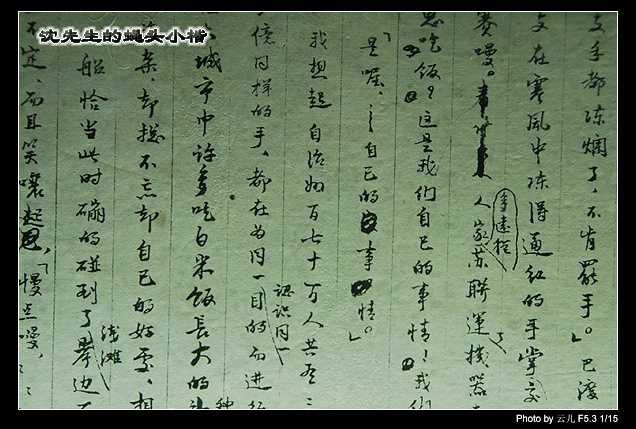 沈先生的蝇头小楷
支手都冻烂了，不肯罢手。」巴渡
文在寒风中冻得通红的手掌交
人家苏联运机器
思吃饭？这是我们自己的事情！我们
「是喔，自己的事情。」
我想起自治州百七十万人共有三
亿同样的手，都在为同一目的而进行
认识同一
大城市中许多吃白米饭长大的
杂，却总不忘却自己的好处，相
船恰当此时硼的碰到了岸边
浅滩
不定，而且笑嚷起
「慢点嘎，
Photo by 云儿 F5.3 1/15